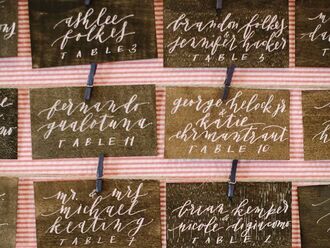 ashlee
folkes
TABLE 3
brandon folkes
&
jennifer hacker
TABLE 5
fernando
gualotuna
TABLE 11
george helock jr
&
katie
ehrmantraut
TABLE 10
mr. & mrs
michael
keating
TABLE 7
brian kemper
&
nicole digiacomo
TABLE 2